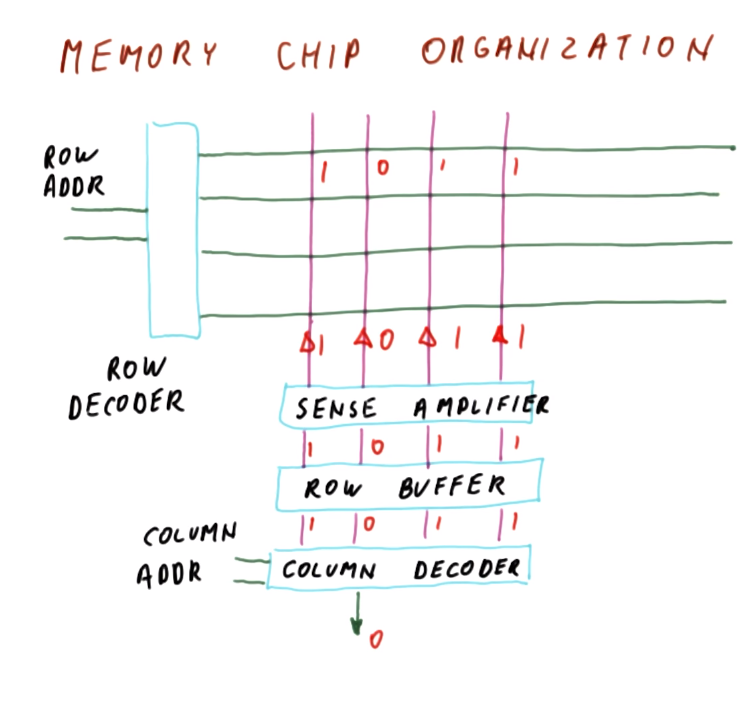 MEMORY CHIP ORGANIZATION
ROW
ADDR
1 0 1 1
1 0 1 1
ROW
DECODER
SENSE AMPLIFIER
1 0 1 1
ROW BUFFER
1 0 1 1
COLUMN
ADDR
COLUMN DECODER
0